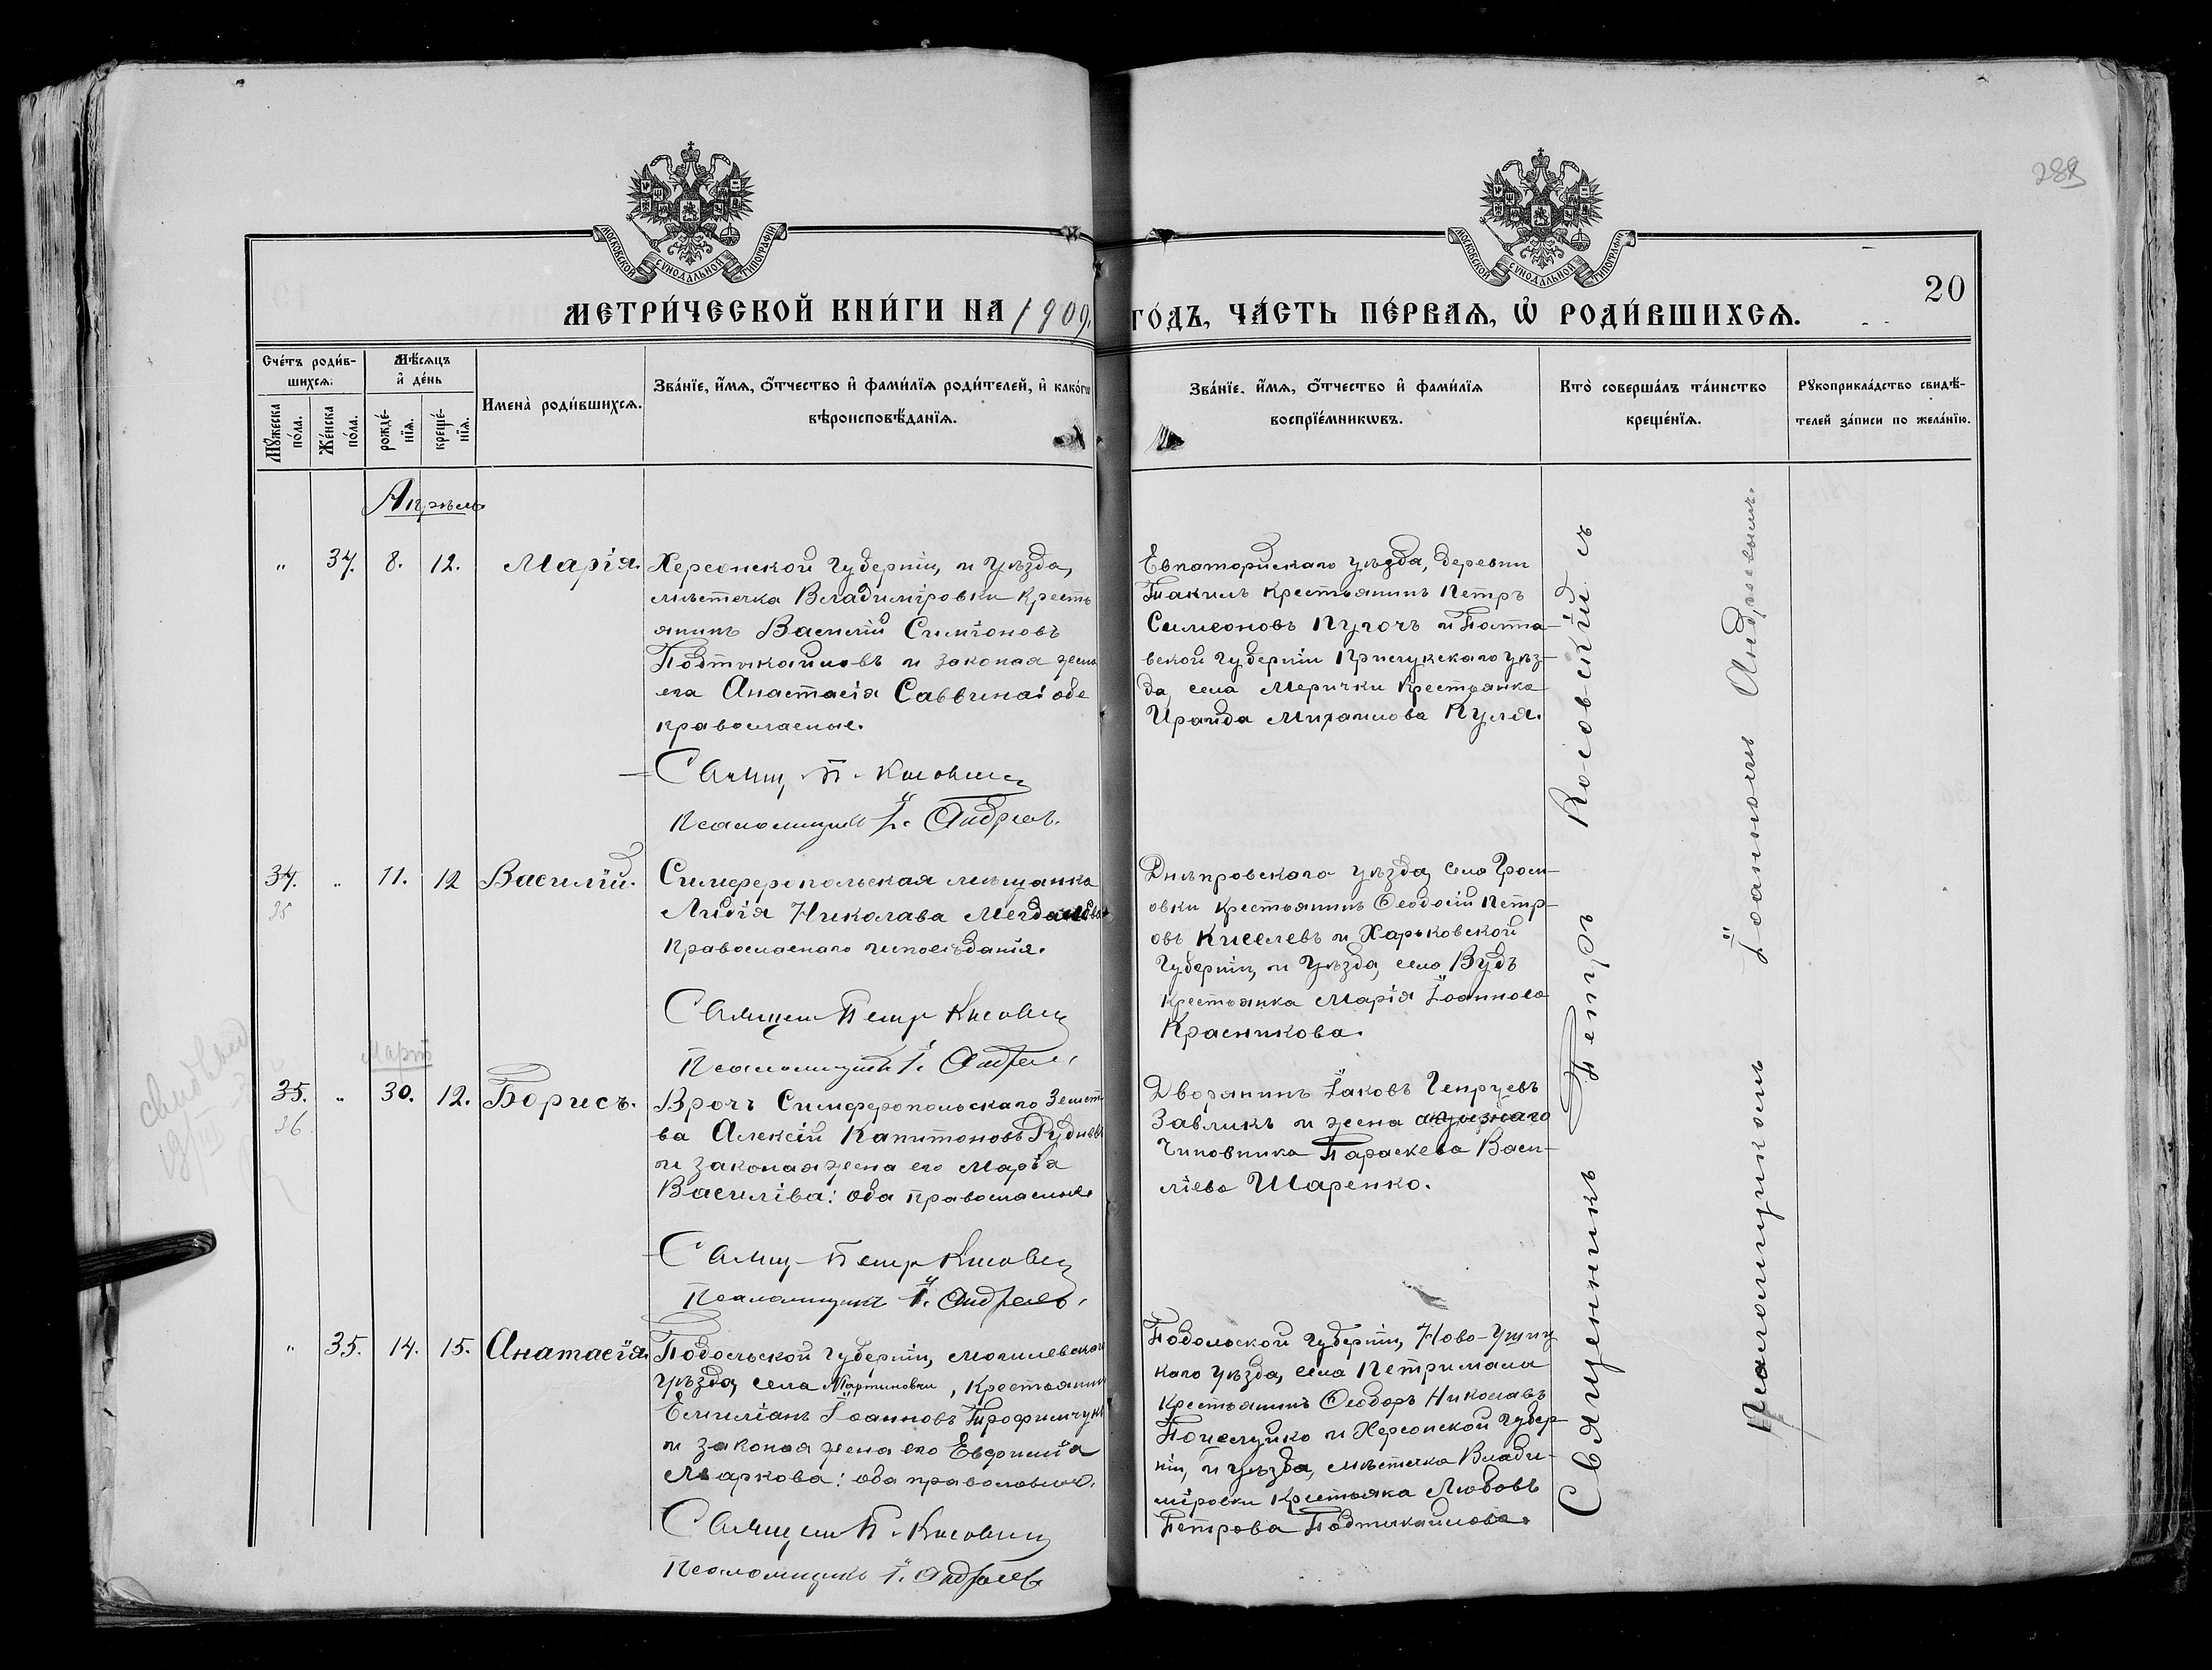 288
МОСКОВСКОЙ СУНОДАЛЬНОЙ ТИПОГРАФІИ
МОСКОВСКОЙ СУНОДАЛЬНОЙ ТИПОГРАФІИ
20
МЕТРИ́ЧЕСКОЙ КНИ́ГИ НА 1909
ГО́ДЪ, ЧА́СТЬ ПЕ́РВАЯ, Ѡ҆ РОДИ́ВШИХСЯ.
Сче́тъ роди́в-
шихся.
Мꙋжеска по́ла.
Же́нска по́ла.
Мѣ́сяцъ
и҆ де́нь
рожде́-
нїя.
креще́-
нїя.
Имена̀ роди́вшихся.
Зва́нїе, и҆́мя, ѻ҆́тчество и҆ фами́лїя роди́телей, и҆ како́гѡ
вѣроисповѣ́данїя.
Зва́нїе, и҆́мя, ѻ҆́тчество и҆ фами́лїя
воспрїе́мникѡвъ.
Кто̀ соверша́лъ та́инство
креще́нїя.
Рꙋкоприкла́дство свидѣ́-
телей за́писи по жела́нїю.
Апрѣль
" 34. 8. 12. Марія.
Херсонской губерніи, и уѣзда,
мѣстечка Владиміровки кресть
янинъ Василій Симіоновъ
Подтыкайловъ и законая жена
его Анастасія Саввина: обе
православные.
Свящ. П. Косовский
Псаломщикъ І. Андреевъ.
Евпаторійскаго уѣзда, деревни
Такилъ крестьянинъ Петръ
Симеоновъ Пугочъ и Полта-
вской губерніи Прилукскаго уѣз-
да, села Мерички крестьянка
Ираида Михаилова Куля.
34. " 11. 12 Василій.
35
Симферопольская мѣщанка
Лидія Николава
Православнаго исповѣданія.
Священ Петр Косовский
Псаломщикъ І. Андреев
Днѣпровскаго уѣзда, села Гром-
овки крестьянинъ Ѳеодосій Петр-
овъ Киселевъ и Харьковской
Губерніи, и уѣзда, села Вудъ
крестьянка Марія Іоаннова
Красникова.
Март
35. " 30. 12. Борисъ.
36
Врочъ Симферопольскаго Земст
ва Алексій Капитоновъ Рудневъ
и законая жена его Марія
Василіва: оба православные
Свящ Петр Косовский
Псаломщикъ І. Андреевъ.
Дворянинъ Іаковъ Генруевъ
Завликъ и жена акцизнаго
Чиновника Параскева Васи-
ліева Шаренко.
" 35. 14. 15. Анатасія.
Подольской губерніи, Могилевскаго
уѣзда, села Мартиновки, крестьянин
Емиліанъ Іоанновъ Трофимчукъ
и законая жена его Евфимія
Маркова: оба православные.
Священ П. Косовский
Псаломщикъ І. Андреевъ
Подольской губерніи, Ново-Ушиц
каго уѣзда, села Петримани
крестьянинъ Ѳеодоръ Николавъ
и Херсонской губер-
ніи, и уѣзда, мѣстечка Влади-
міровки крестьяка Любовъ
Петрова Подтыкайлова.
Священникъ Петръ Косовскій съ
Псаломщикомъ Іоанномъ Андреевымъ.